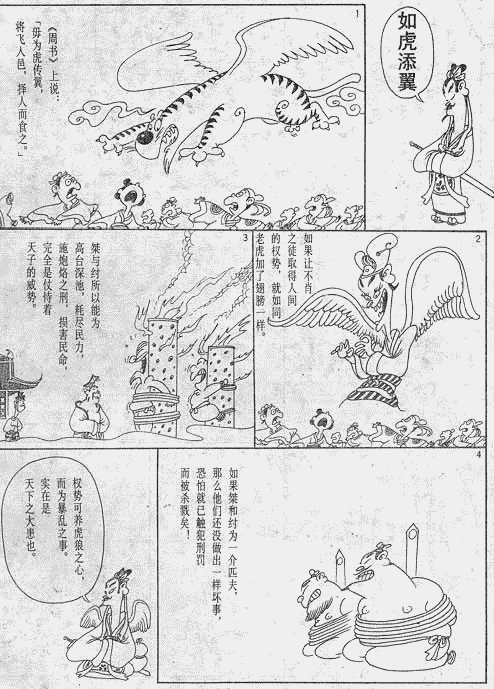 如虎添翼
1
《周书》上说：
「毋为虎传翼，
将飞人邑，
择人而食之。」
2
如果让不肖
之徒取得人间
的权势，就如同
老虎加了翅膀一样。
3
桀与纣所以能为
高台深池，耗尽民力，
施炮烙之刑，损害民命，
完全是仗恃着
天子的威势。
4
如果桀和纣为一介匹夫，
那么他们还没做出一样坏事，
恐怕就已触犯刑罚
而被杀戮矣！
权势可养虎狼之心，
而为暴乱之事。
实在是
天下之大患也。